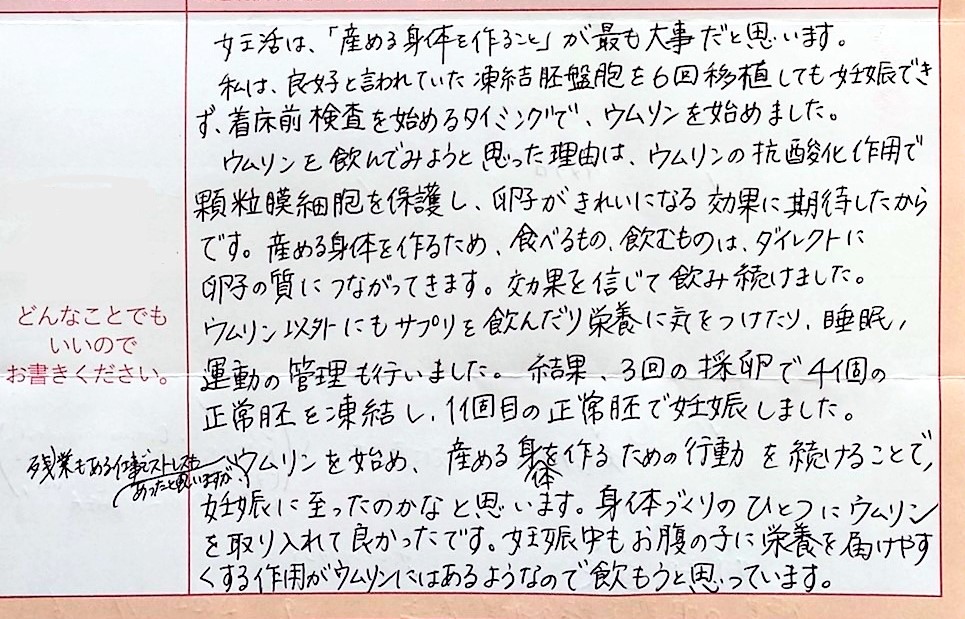 妊活は、「産める身体を作ること」が最も大事だと思います。
私は、良好と言われていた凍結胚盤胞を6回移植しても妊娠でき
ず、着床前検査を始めるタイミングで、ウムリンを始めました。
ウムリンを飲んでみようと思った理由は、ウムリンの抗酸化作用で
顆粒膜細胞を保護し、卵子がきれいになる効果に期待したから
です。産める身体を作るため、食べるもの、飲むものは、ダイレクトに
卵子の質につながってきます。効果を信じて飲み続けました。
ウムリン以外にもサプリを飲んだり栄養に気をつけたり、睡眠、
運動の管理も行いました。結果、3回の採卵で4個の
正常胚を凍結し、1個目の正常胚で妊娠しました。
残業もある仕事でストレスも
あったと思いますが、
ウムリンを始め、産める身体を作るための行動を続けることで、
妊娠に至ったのかなと思います。身体づくりのひとつにウムリン
を取り入れて良かったです。妊娠中もお腹の子に栄養を届けやす
くする作用がウムリンにはあるようなので飲もうと思っています。
どんなことでも
いいので
お書きください。